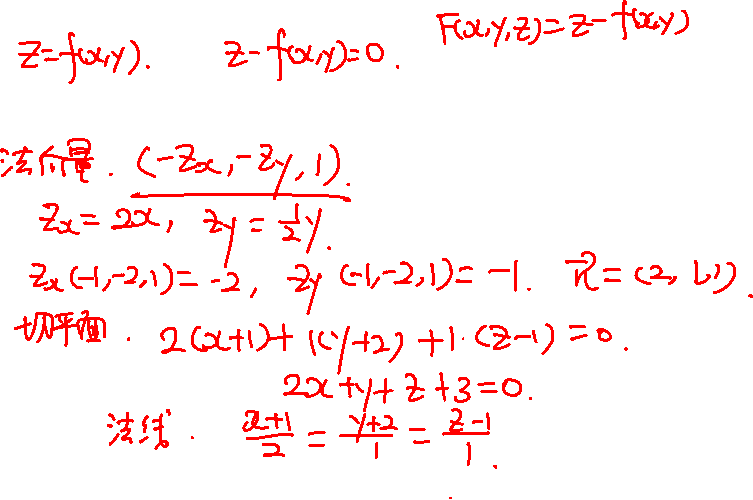 z=f(x,y). z-f(x,y)=0. F(x,y,z)=z-f(x,y)
法向量. (-Zx, -Zy, 1).
Zx=2x, Zy=\frac{1}{2}y.
Zx(-1,-2,1)=-2, Zy(-1,-2,1)=-1. \vec{n}=(2,1,1).
切平面. 2(x+1)+1(y+2)+1·(z-1)=0.
2x+y+z+3=0.
法线. \frac{x+1}{2}=\frac{y+2}{1}=\frac{z-1}{1}.